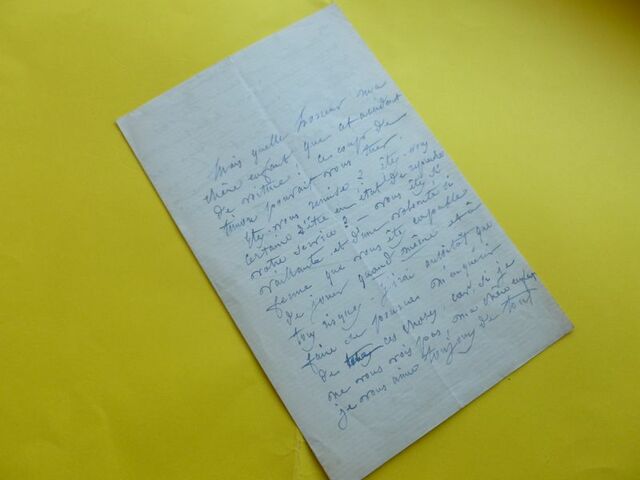 Mais quelle horreur ma
chère enfant que cet accident
de voiture ! Ce coup de
timon pouvait vous tuer.
Etes-vous remise ? êtes-vous
certaine d'être en état de reprendre
votre service ? – vous êtes si
vaillante et d'une volonté si
ferme que vous êtes capable
de jouer quand même et à
tous risques. J'irai aussitôt que
faire se pourra m'enquérir
de toutes ces choses, car si je
ne vous vois pas, ma chère enfant
je vous aime toujours de tout